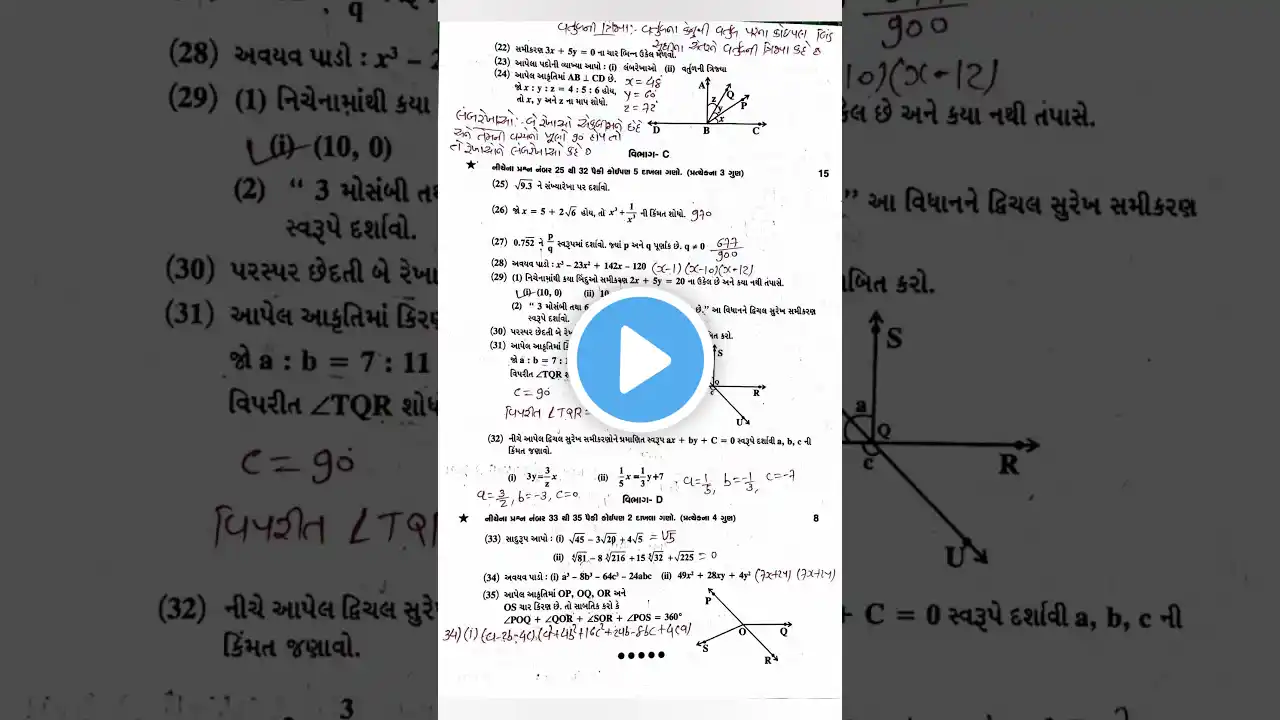 વર્તુળની ત્રિજ્યા:- વર્તુળના કેન્દ્રથી વર્તુળ પરના કોઇપણ બિંદુ
સુધીના અંતરને વર્તુળની ત્રિજ્યા કહે છે
(22) સમીકરણ 3x + 5y = 0 ના ચાર ભિન્ન ઉકેલ મેળવો.
(23) આપેલા પદોની વ્યાખ્યા આપો : (i) લંબરેખાઓ (ii) વર્તુળની ત્રિજ્યા
(24) આપેલ આકૃતિમાં AB ⊥ CD છે. x = 48°
જો x : y : z = 4 : 5 : 6 હોય, y = 60°
તો x, y અને z ના માપ શોધો. z = 72°
A Q P z y x D B C
લંબરેખાઓ :- બે રેખાઓ એકબીજાને છેદે
અને તેમની વચ્ચેનો ખૂણો 90 હોય તો
તે રેખાઓને લંબરેખાઓ કહે છે
વિભાગ- C
★ નીચેના પ્રશ્ન નંબર 25 થી 32 પૈકી કોઈપણ 5 દાખલા ગણો. (પ્રત્યેકના 3 ગુણ) 15
(25) √9.3 ને સંખ્યારેખા પર દર્શાવો.
(26) જો x = 5 + 2√6 હોય, તો x³ + 1/x³ ની કિંમત શોધો. 970
(27) 0.752 ને p/q સ્વરૂપમાં દર્શાવો. જ્યાં p અને q પૂર્ણાંક છે. q ≠ 0 677/900
(28) અવયવ પાડો : x³ – 23x² + 142x – 120 (x-1) (x-10)(x-12)
(29) (1) નિચેનામાંથી કયા બિંદુઓ સમીકરણ 2x + 5y = 20 ના ઉકેલ છે અને કયા નથી તપાસે.
(i) (10, 0) (ii)
(2) “ 3 મોસંબી તથા 6 છે.” આ વિધાનને દ્વિચલ સુરેખ સમીકરણ
સ્વરૂપે દર્શાવો.
(30) પરસ્પર છેદતી બે રેખા
(31) આપેલ આકૃતિમાં કિરણ
જો a : b = 7 :
વિપરીત ∠TQR
c = 90°
વિપરીત ∠TQR =
S Q R c U
(32) નીચે આપેલ દ્વિચલ સુરેખ સમીકરણોને પ્રમાણિત સ્વરૂપ ax + by + C = 0 સ્વરૂપે દર્શાવી a, b, c ની
કિંમત જણાવો.
(i) 3y = 3/2 x (ii) 1/5 x = 1/3 y + 7 a = 1/5, b = -1/3, c = -7
a = 3/2, b = -3, c = 0
વિભાગ- D
★ નીચેના પ્રશ્ન નંબર 33 થી 35 પૈકી કોઈપણ 2 દાખલા ગણો. (પ્રત્યેકના 4 ગુણ) 8
(33) સાદુરૂપ આપો : (i) √45 – 3√20 + 4√5 = √5
(ii) ∜81 – 8 ∛216 + 15 ⁵√32 + √225 = 0
(34) અવયવ પાડો : (i) a³ – 8b³ – 64c³ – 24abc (ii) 49x² + 28xy + 4y² (7x+2y) (7x+2y)
(35) આપેલ આકૃતિમાં OP, OQ, OR અને
OS ચાર કિરણ છે. તો સાબતિક કરો કે
∠POQ + ∠QOR + ∠SOR + ∠POS = 360°
34) (i) (a-2b-4c) (a²+4b²+16c²+2ab-8bc+4ca)
P O Q S R
● ● ● ● ●
q
(28) અવયવ પાડો : x³ –
(29) (1) નિચેનામાંથી કયા
(i) (10, 0)
(2) “ 3 મોસંબી
સ્વરૂપે દર્શાવો.
(30) પરસ્પર છેદતી બે રેખા
(31) આપેલ આકૃતિમાં કિરણ
જો a : b = 7 : 11
વિપરીત ∠TQR શોધ
c = 90°
વિપરીત ∠TQR
(32) નીચે આપેલ દ્વિચલ સુરે
કિંમત જણાવો.
3
900
10)(x-12)
કેલ છે અને કયા નથી તપાસે.
” આ વિધાનને દ્વિચલ સુરેખ સમીકરણ
બિત કરો.
S a Q c R U
+ C = 0 સ્વરૂપે દર્શાવી a, b, c ની